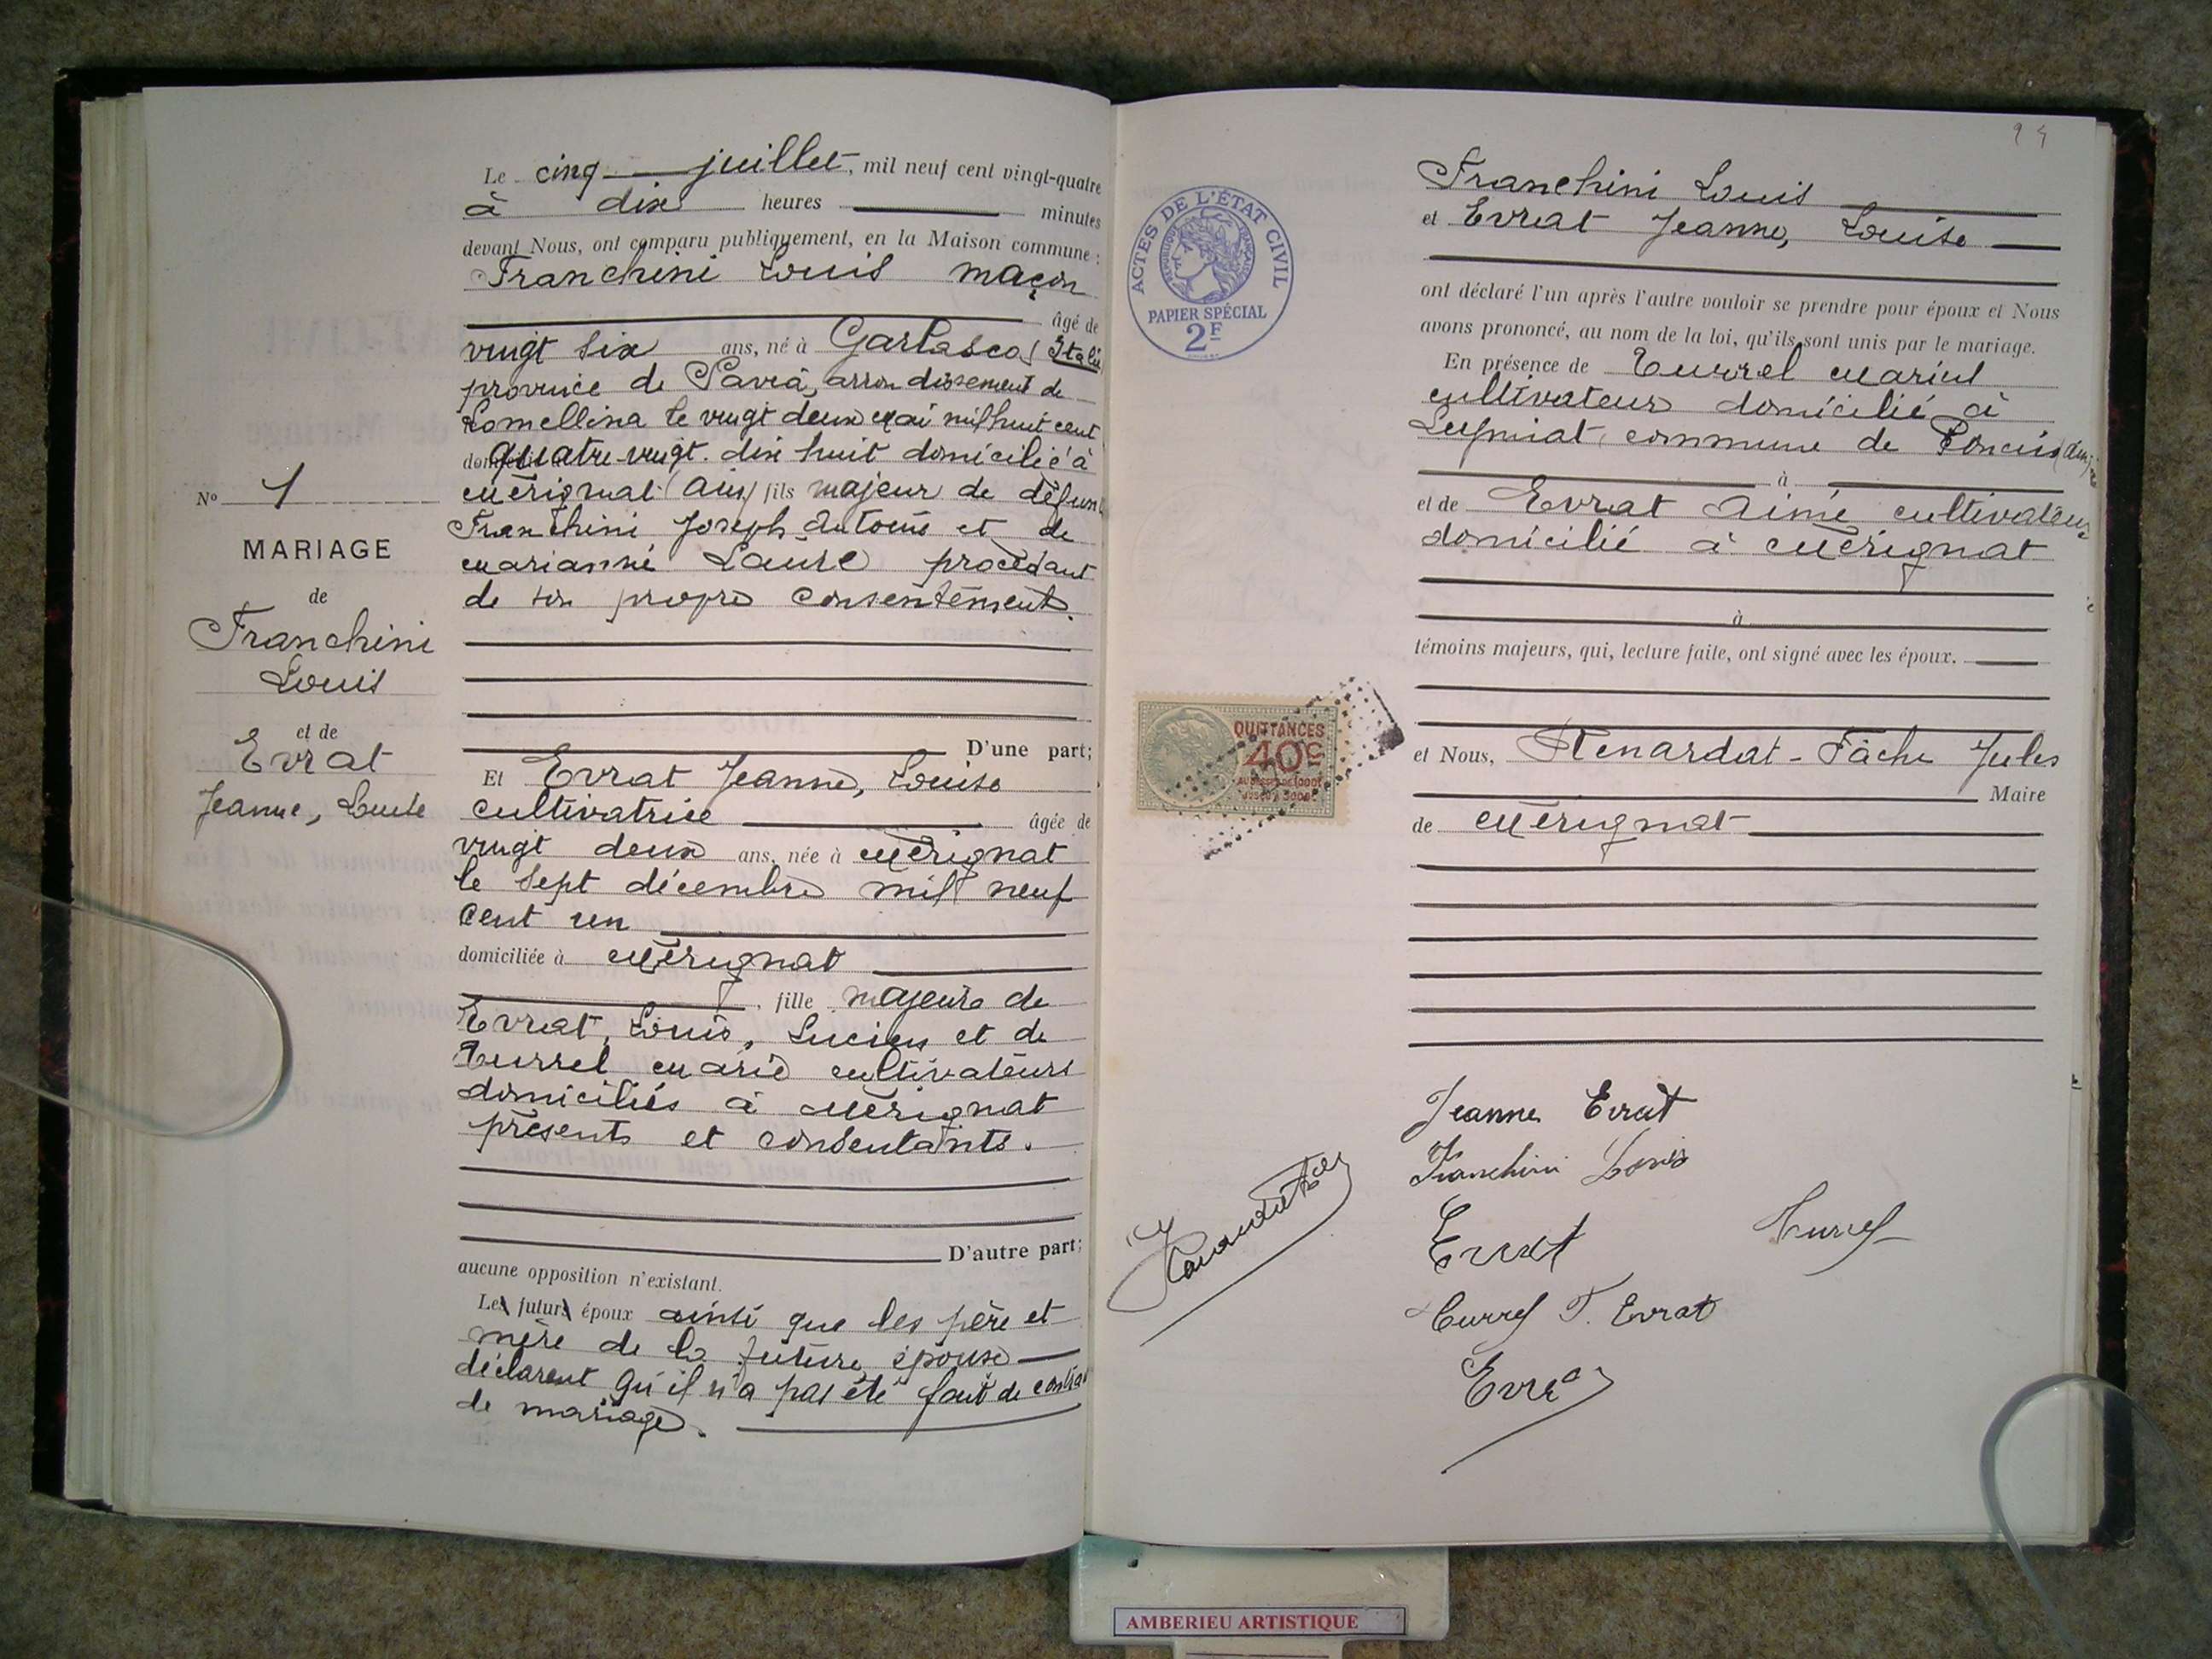 Le cinq juillet, mil neuf cent vingt-quatre
à dix heures minutes
devant Nous, ont comparu publiquement, en la Maison commune :
Franchini Louis maçon
âgé de
vingt six ans, né à Garlasco (Italie
province de Pavia, arrondissement de
Lomellina le vingt deux mai mil huit cent
quatre-vingt-dix huit domicilié à
Mérignat (Ain) fils majeur de défunt
Franchini Joseph Antoine et de
Marianne Laure procédant
de son propre consentement.
D'une part;
Et Evrat Jeanne, Louise
cultivatrice âgée de
vingt deux ans, née à Mérignat
le sept décembre mil neuf
cent un
domiciliée à Mérignat
, fille majeure de
Evrat, Louis, Lucien et de
Turrel Marie cultivateurs
domiciliés à Mérignat
présents et consentants.
D'autre part;
aucune opposition n'existant.
Les futurs époux ainsi que les père et
mère de la future épouse
déclarent qu'il n'a pas été fait de contrat
de mariage.
No 1
MARIAGE
de
Franchini
Louis
et de
Evrat
Jeanne, Louise
94
ACTES DE L'ÉTAT CIVIL
RÉPUBLIQUE FRANÇAISE
PAPIER SPÉCIAL
2F
Franchini Louis
et Evrat Jeanne, Louise
ont déclaré l'un après l'autre vouloir se prendre pour époux et Nous
avons prononcé, au nom de la loi, qu'ils sont unis par le mariage.
En présence de Turrel Marius
cultivateur domicilié à
commune de Poncin (Ain)
à
et de Evrat Aimé cultivateur
domicilié à Mérignat
à
témoins majeurs, qui, lecture faite, ont signé avec les époux.
QUITTANCES
40c
et Nous, Renardat-Fâche Jules
Maire
de Mérignat
Jeanne Evrat
Franchini Louis
Evrat
Turrel
Turrel F. Evrat
AMBERIEU ARTISTIQUE